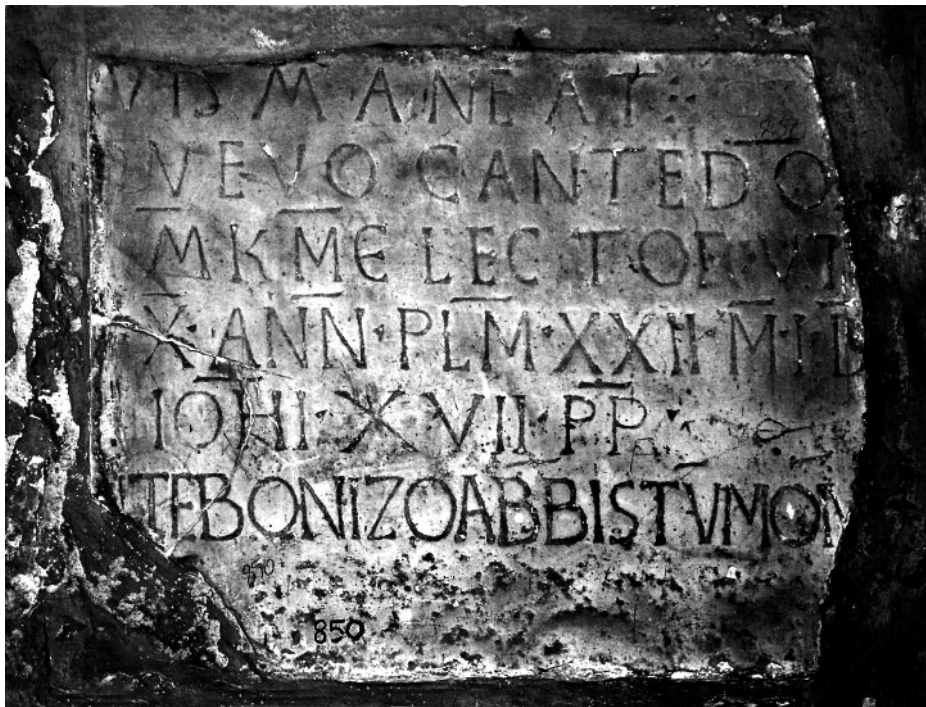 VIS M A NE AT
VEVO CANTEDO
M K ME LECTOR VT
X ANN PLM XXII M I D
IOHI XVII PP
TEBONIZOABBISTVMON
850
850